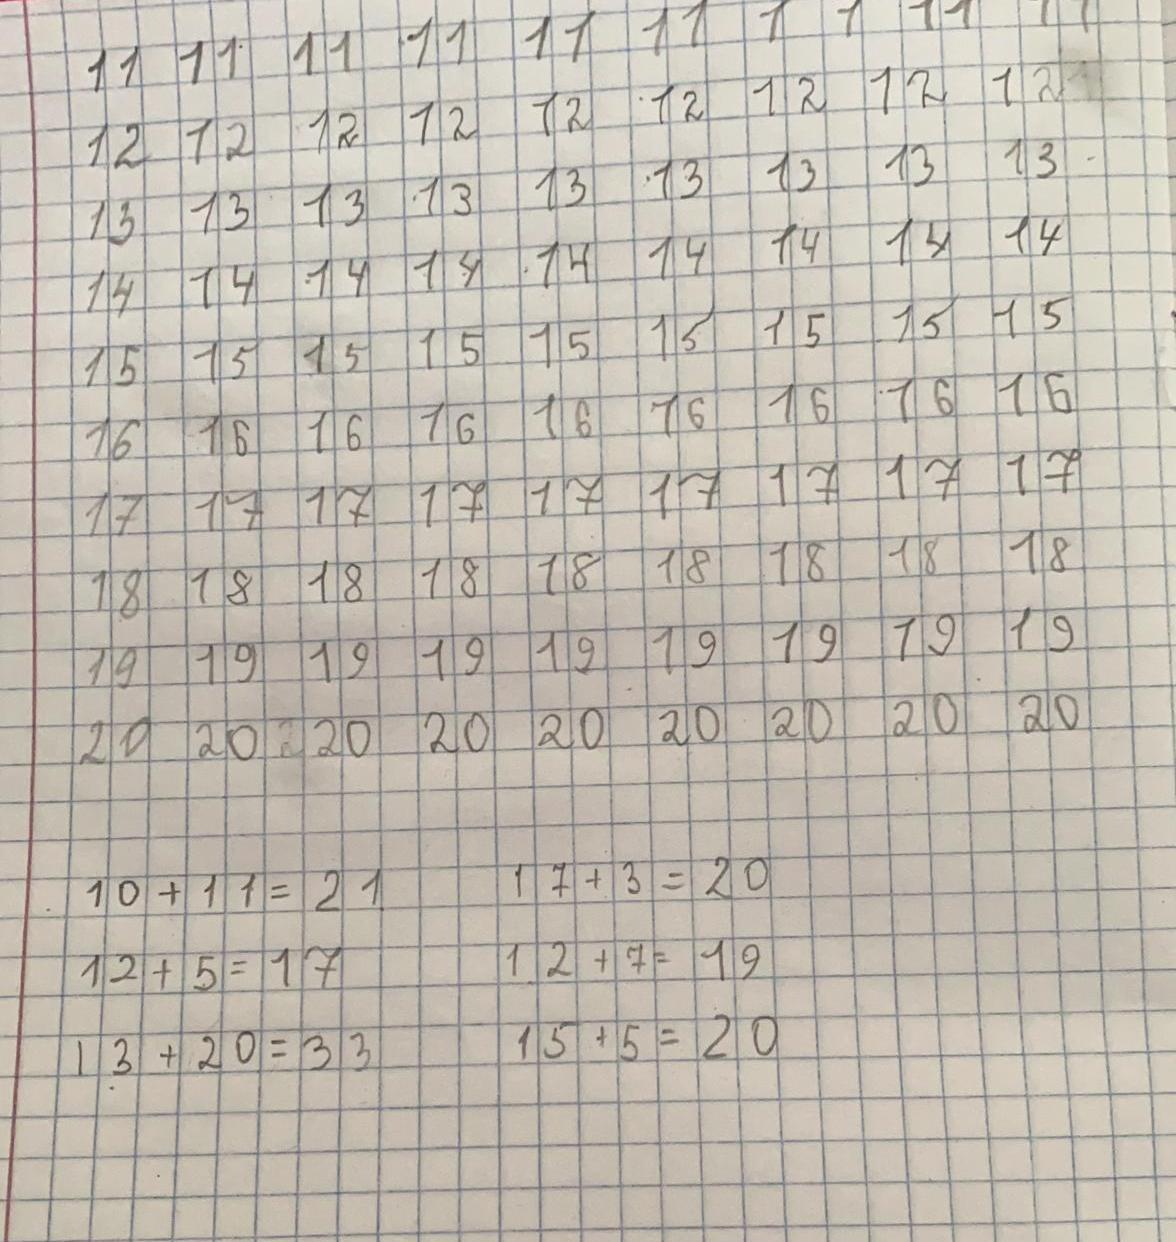 11 11 11 11 11 11 1 1 11 11
12 12 12 12 12 12 12 12 12
13 13 13 13 13 13 13 13 13
14 14 14 14 14 14 14 14 14
15 15 15 15 15 15 15 15 15
16 16 16 16 16 16 16 16 16
17 17 17 17 17 17 17 17 17
18 18 18 18 18 18 18 18 18
19 19 19 19 19 19 19 19 19
20 20 20 20 20 20 20 20 20
10+11=21 17+3=20
12+5=17 12+7=19
13+20=33 15+5=20